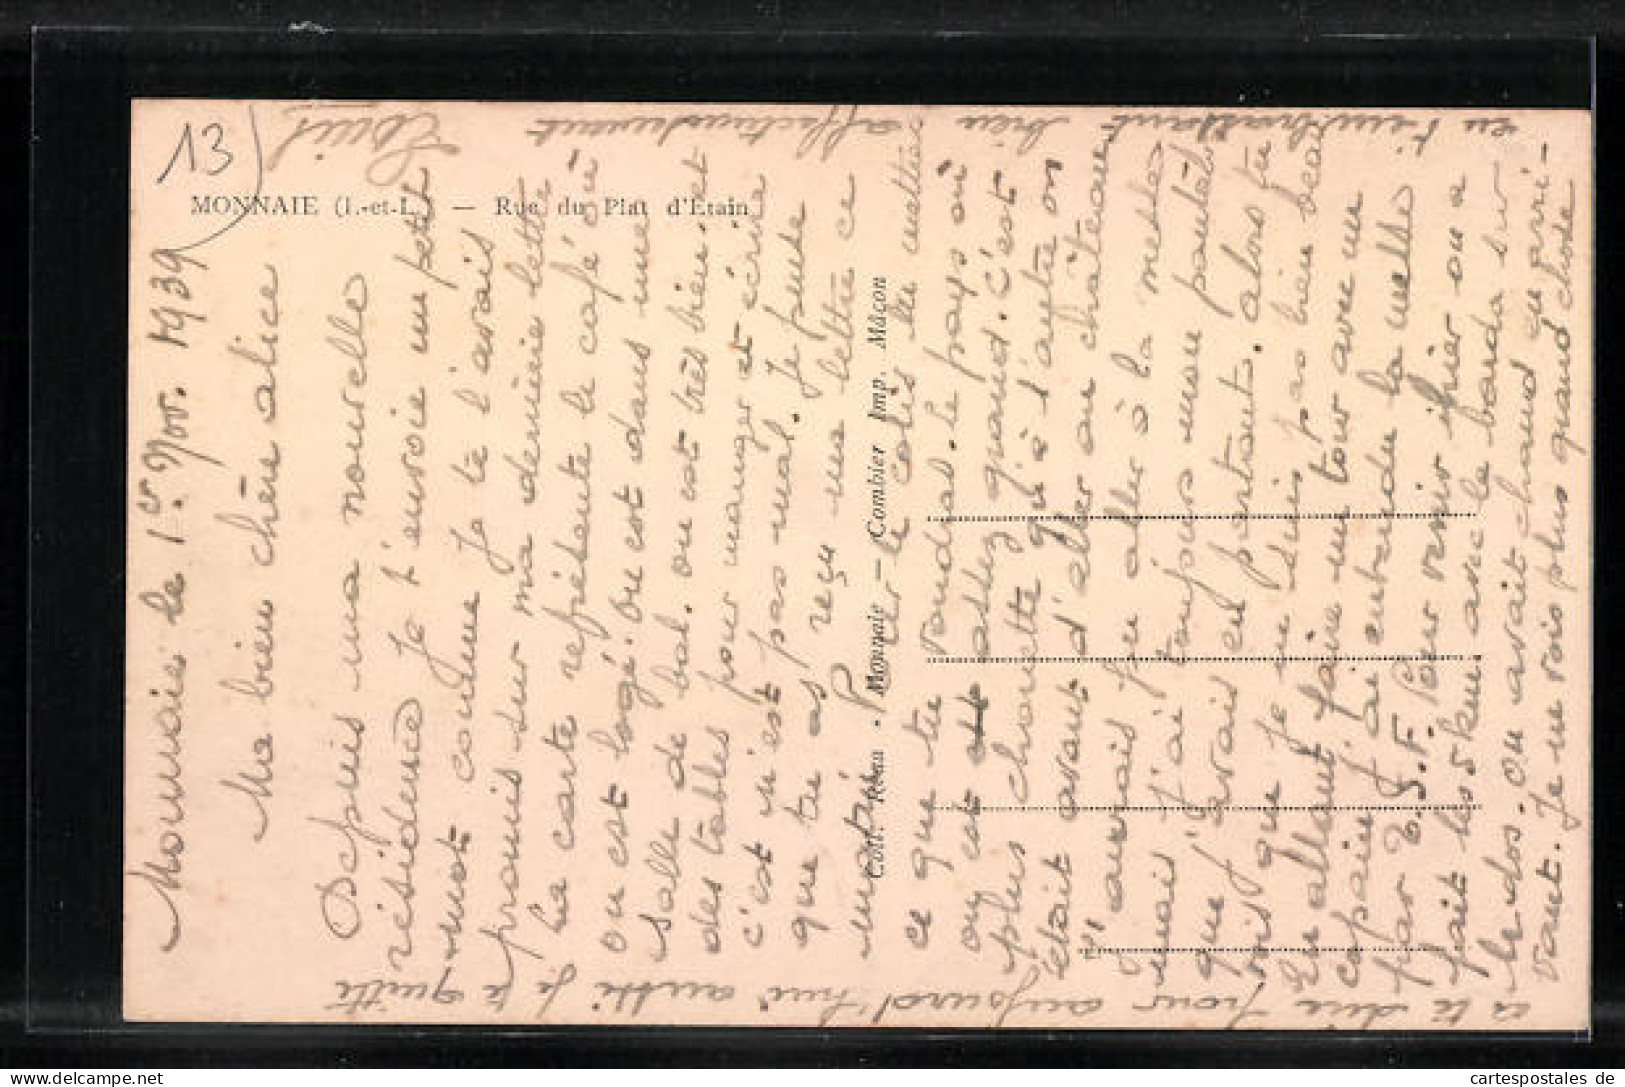 13)
MONNAIE (I.-et-L.) — Rue du Plat d'Etain
Coll. Réau - P. Monnaie — Combier Imp. Mâcon
Monnaie le 1er Nov. 1939
Ma bien chère alice
Depuis ma nouvelle
résidence je t'envoie un petit
mot comme je te l'avais
promis sur ma dernière lettre
La carte représente le café où
on est logé. On est dans une
salle de bal. on est très bien. et
des tables pour manger et écrire
c'est n'est pas mal. Je pense
que tu as reçu ma lettre ce
matin. Per le colis tu mettras
ce que tu voudras. Le pays où
on est est assez grand. c'est
plus chouette qu'à l'autre on
était avant d'aller au château
j'aurrais pu aller à la messe
mais j'ai toujours mon pantalon
que j'avais en partant. alors tu
vois que je ne suis pas bien beau
En allant faire un tour avec un
copain j'ai entendu la messe
par T.S.F. Pour venir hier on a
fait les 5 km avec le barda sur
le dos. On avait chaud en arri-
vant. Je ne vois plus quand chose
es te dire pour aujourd'hui aussi je te quitte
en t'embrassant bien affectueusement
Louis
cartespostales de